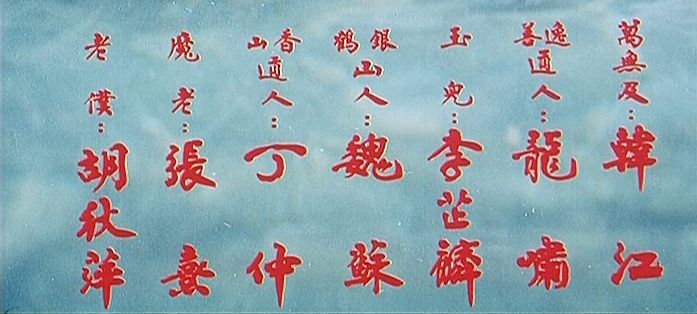 萬無及：韓江
逸善道人：龍嘯
玉兒：李芷麟
銀鶴山人：魏蘇
香山道人：丁仲
魔老：張熹
老僕：胡秋萍